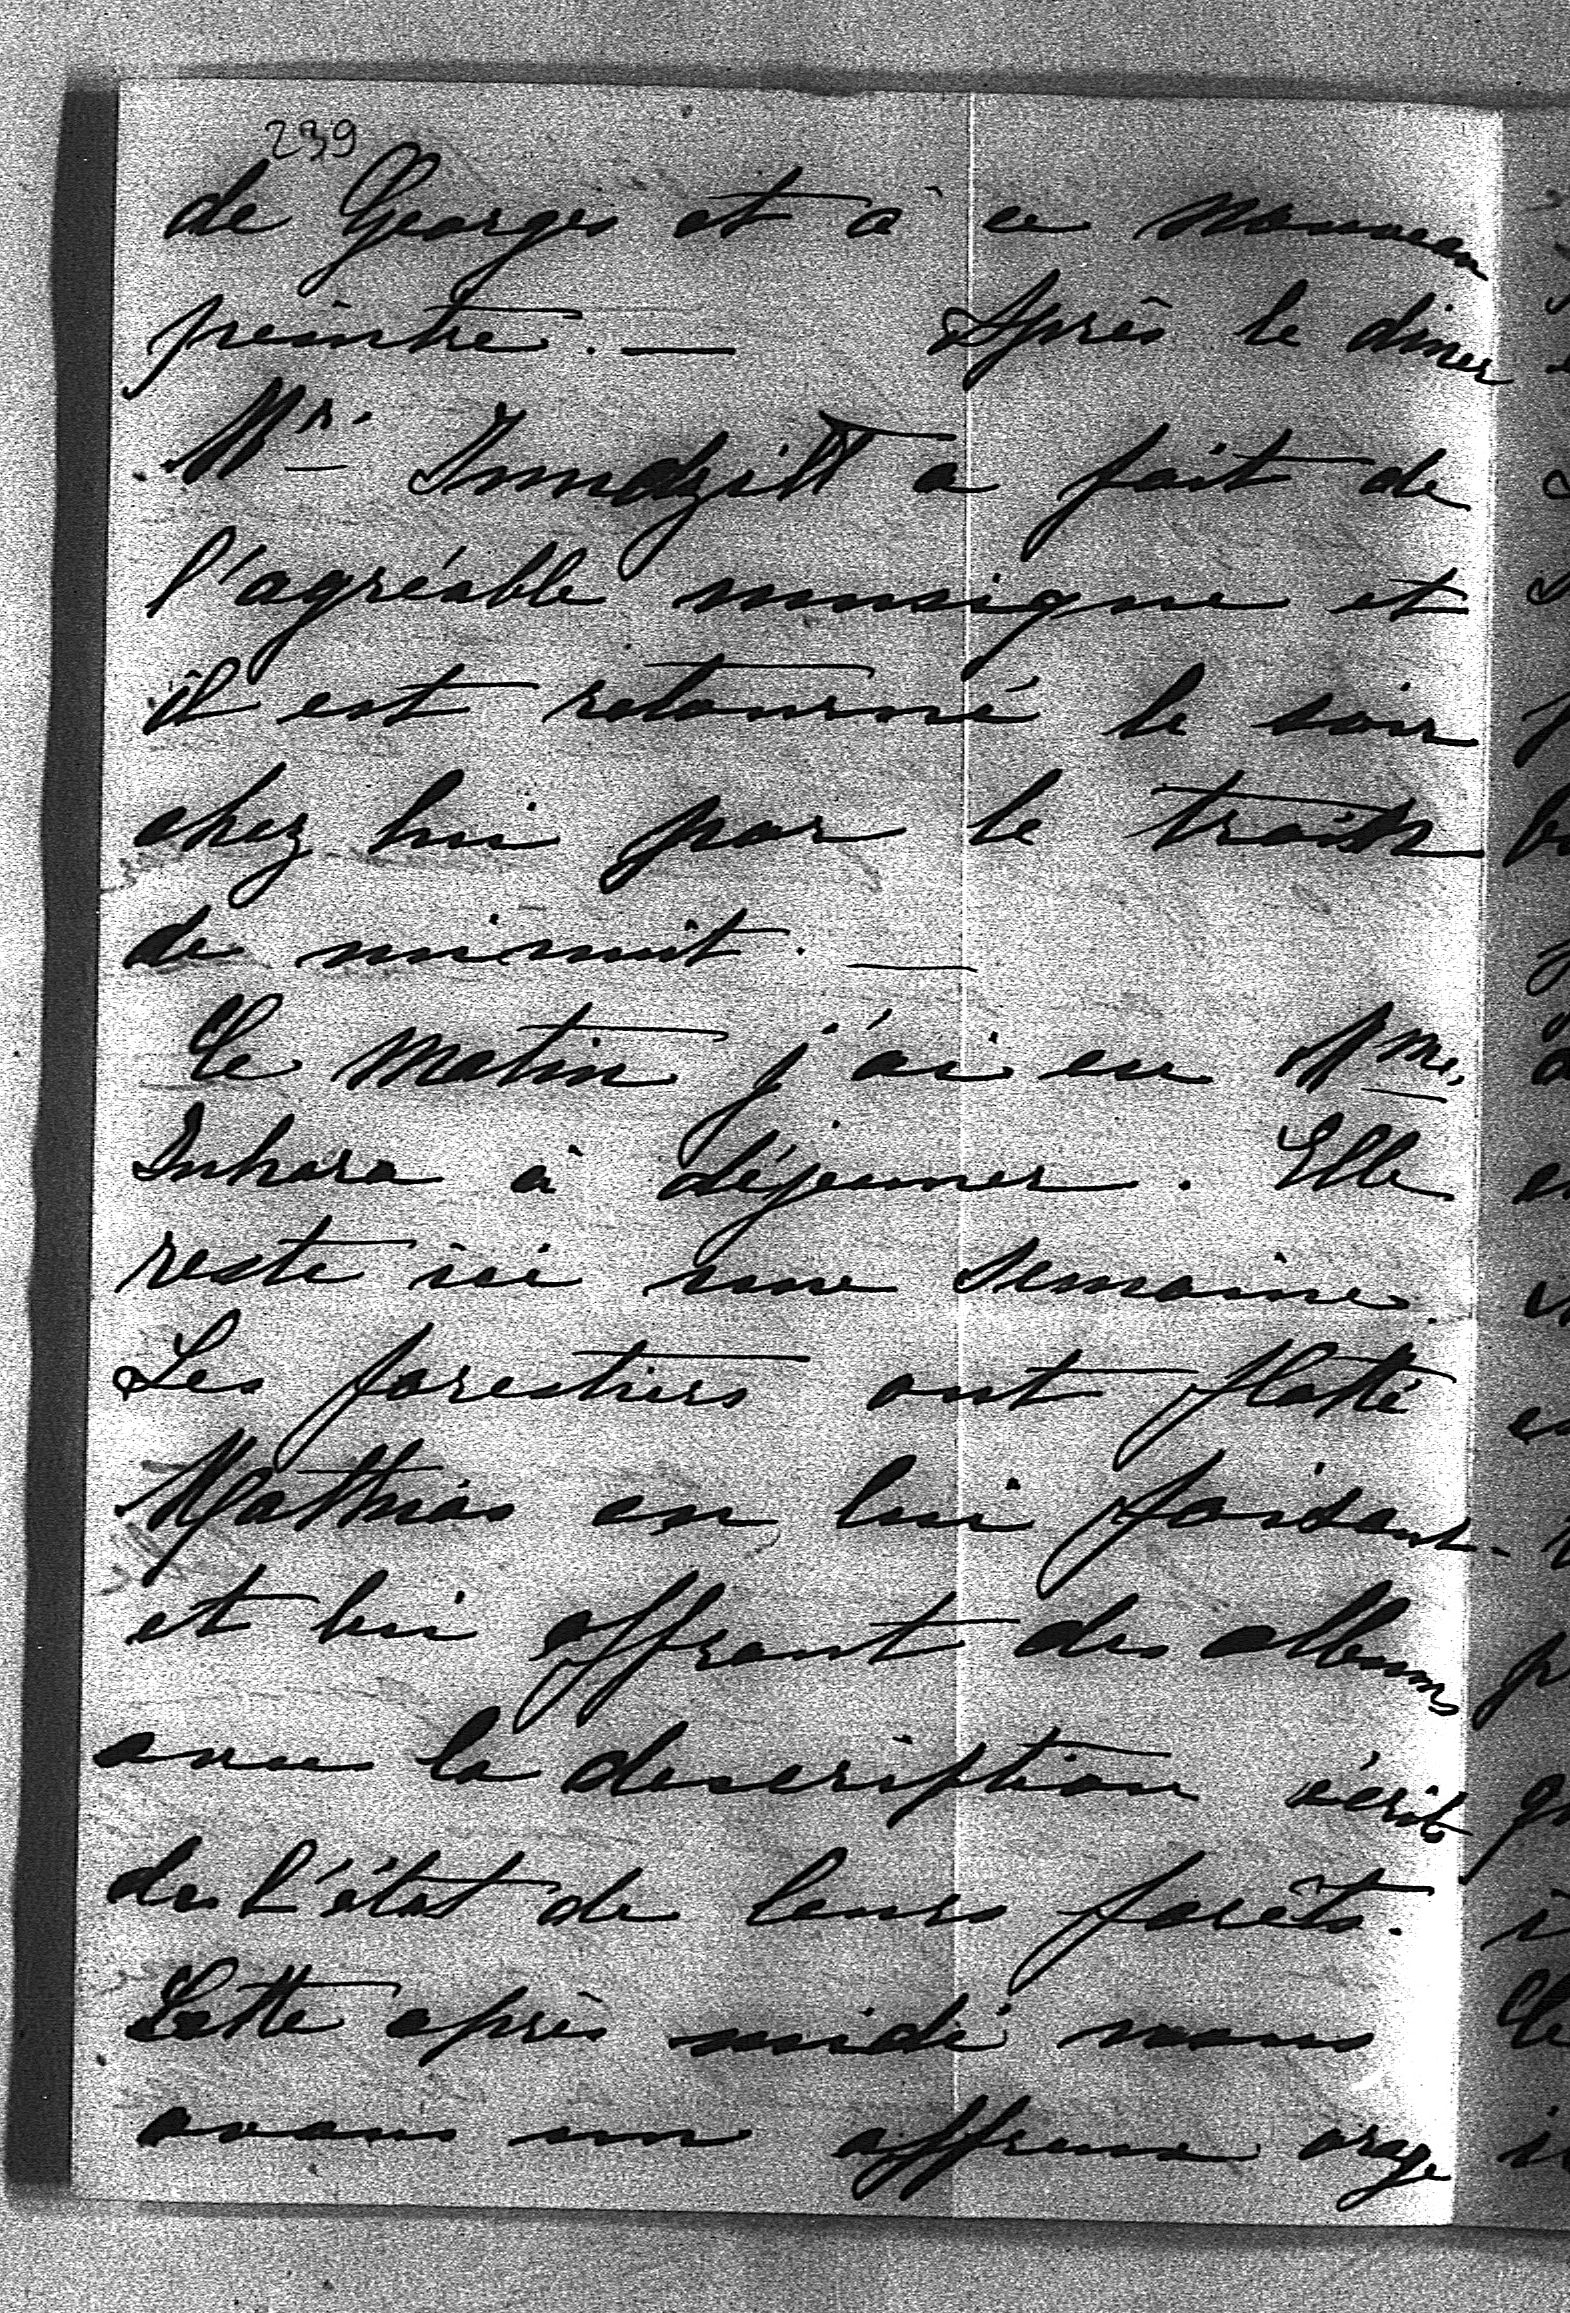 239
de Georges et à ce nouveau
peintre. — Après le diner
Mr. a fait de
l'agréable musique et
il est retourné le soir
chez lui par le train
de minuit. —
Le matin j'ai eu Mme.
à déjeuner. Elle
reste ici une semaine.
Les forestiers ont flatté
Mathias en lui faisant
et lui offrant des albums
avec la description écrit
de l'état de leurs forêts.
Cette après midi nous
avons un affreux orage